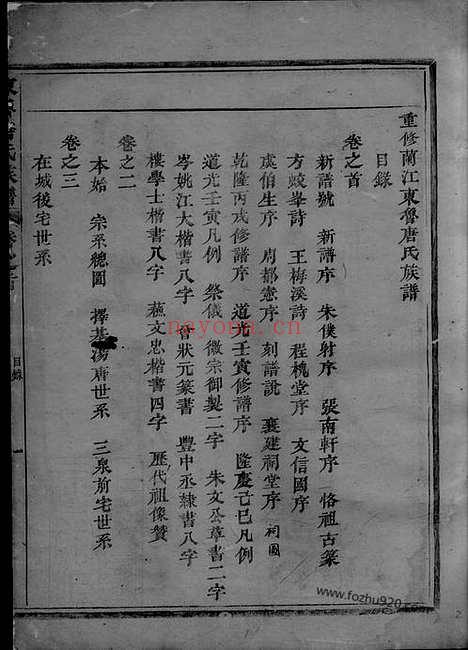 重修蘭江東魯唐氏族譜
目錄
卷之首
新譜號　新譜序　朱僕射序　張南軒序　恪祖古篆
方蛟峯詩　王梅溪詩　程槐堂序　文信國序
虞伯生序　周都憲序　刻譜說　襄建祠堂序　祠圖
乾隆丙戌修譜序　道光壬寅修譜序　隆慶己巳凡例
道光壬寅凡例　祭儀　徽宗御製二字　朱文公草書二字
岑姚江大楷書八字　曾狀元篆書　豐中丞隸書八字
樓學士楷書八字　蘇文忠楷書四字　歷代祖像贊
卷之二
本始　宗系總圖　擇基湯唐世系　三泉前宅世系
卷之三
在城後宅世系
目錄
nayona.cn
www.fozhu920.com